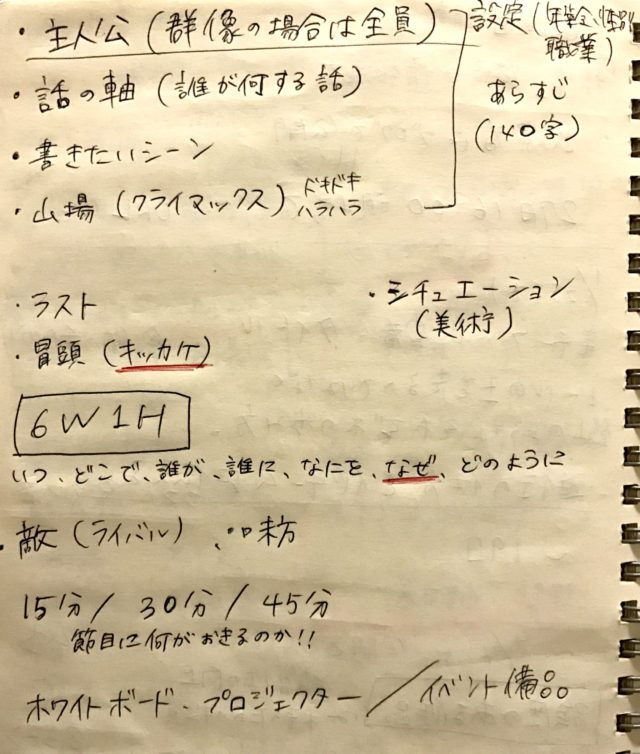 ・主人公(群像の場合は全員)
設定(年齢、性別
職業)
・話の軸(誰が何する話)
あらすじ
(140字)
・書きたいシーン
・山場(クライマックス)ドキドキ
ハラハラ
・ラスト
・シチュエーション
(美術)
・冒頭(キッカケ)
6W1H
いつ、どこで、誰が、誰に、なにを、なぜ、どのように
・敵(ライバル)、味方
15分/30分/45分
節目に何がおきるのか!!
ホワイトボード、プロジェクター/イベント備品